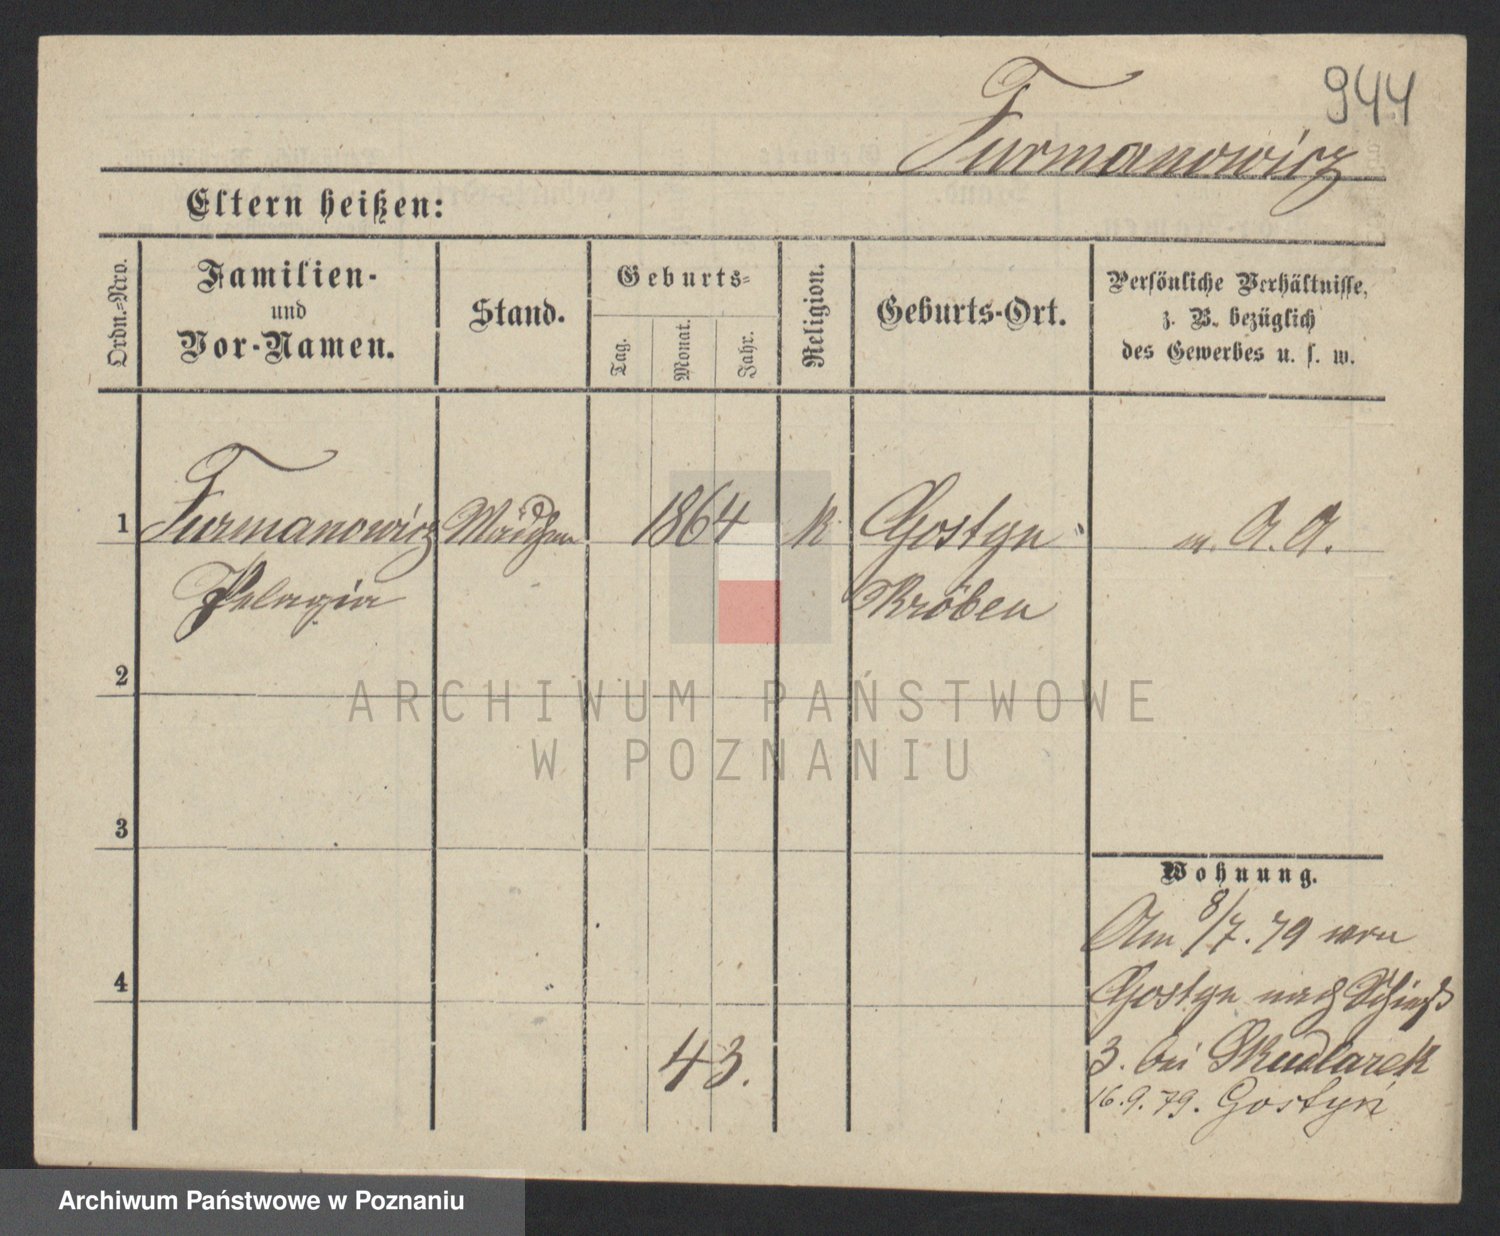 944
Furmanowicz
Eltern heißen:
Ordn.-Nro.
Familien-
und
Vor-Namen.
Stand.
Geburts-
Tag.
Monat.
Jahr.
Religion.
Geburts-Ort.
Persönliche Verhältnisse,
z. B. bezüglich
des Gewerbes u. s. w.
1 Furmanowicz Mädchen 1864 k Gostyn A. A.
Pelagia Kröben
2
3
4
43.
Wohnung.
Am 8/7. 79 von
Gostyn nach
3. bei Skudlarek
16.9.79. Gostyń
ARCHIWUM PAŃSTWOWE
W POZNANIU
Archiwum Państwowe w Poznaniu